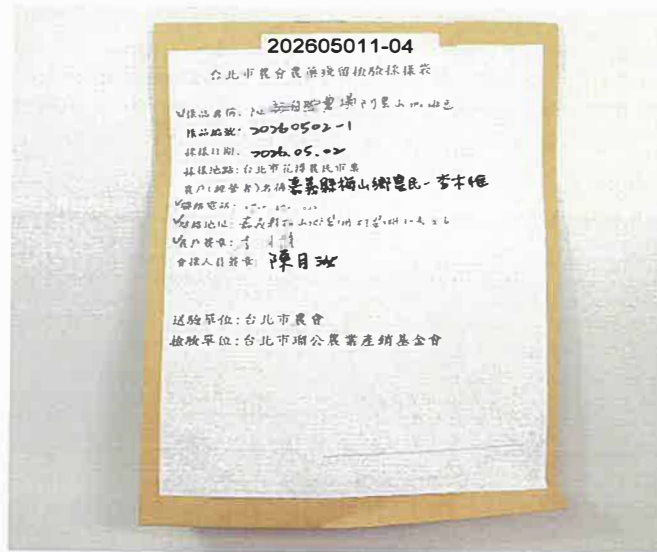 202605011-04
台北市農會農藥殘留檢驗採樣袋
樣品名稱:
樣品編號: 20260502-1
採樣日期: 2026.05.02
採樣地點:台北市花博農民市集
農戶(經營者)名稱 嘉義縣梅山鄉農民-李木雄
聯絡電話:
聯絡地址: 嘉義縣梅山
農戶簽章: 李
會採人員簽章: 陳月
送驗單位:台北市農會
檢驗單位:台北市瑠公農業產銷基金會